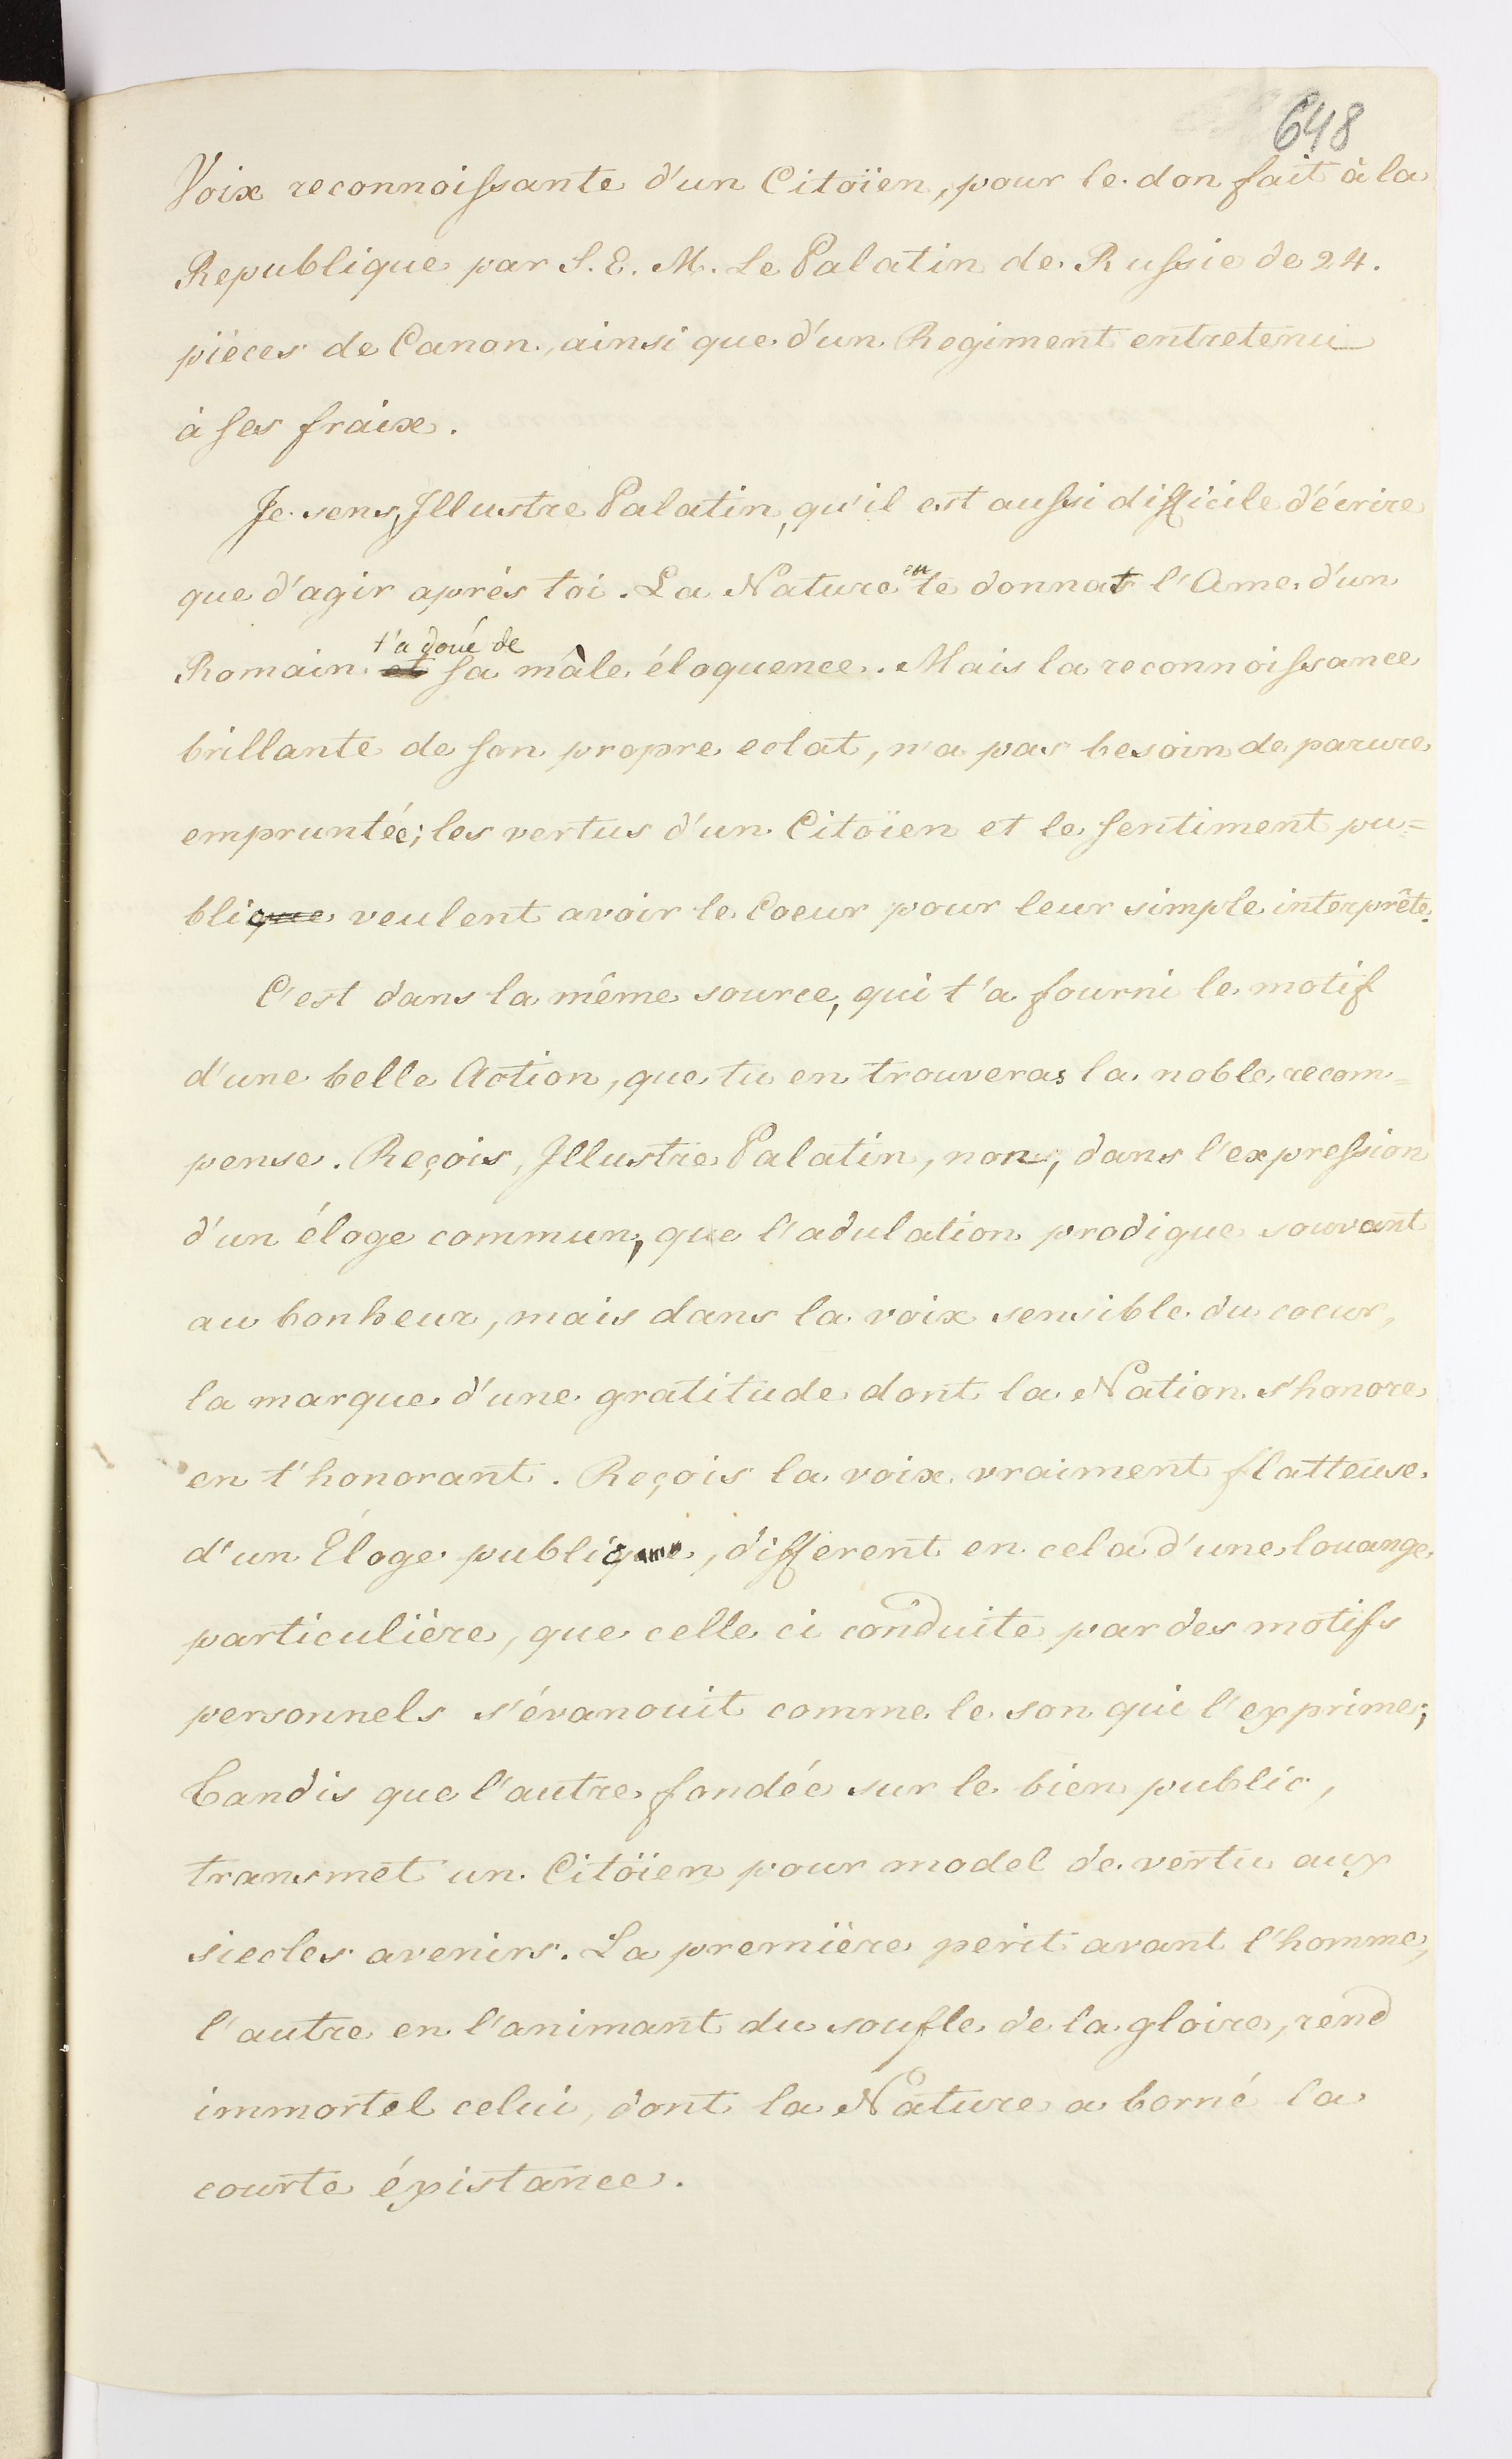 648
Voix reconnoissante d'un Citoïen, pour le don fait à la
Republique par S. E. M. Le Palatin de Russie de 24.
pièces de Canon, ainsi que d'un Regiment entretenu
à ses fraix.
Je sens, Illustre Palatin, qu'il est aussi difficile d'écrire
que d'agir après toi. La Nature en te donnat l'Ame d'un
Romain t'a doué de sa mâle éloquence. Mais la reconnoissance
brillante de son propre eclat, n'a pas besoin de parure
empruntée; les vertus d'un Citoïen et le sentiment pu=
blique veulent avoir le Coeur pour leur simple interprête.
C'est dans la même source, qui t'a fourni le motif
d'une belle Action, que tu en trouveras la noble recom=
pense. Reçois, Illustre Palatin, non, dans l'expression
d'un éloge commun, que l'adulation prodigue souvant
au bonheur, mais dans la voix sensible du coeur,
la marque d'une gratitude dont la Nation s'honore
en t'honorant. Reçois la voix vraiment flatteuse
d'un Éloge publique, different en cela d'une louange
particulière, que celle ci conduite par des motifs
personnels s'évanouit comme le son qui l'exprime;
tandis que l'autre fondée sur le bien public,
transmet un Citöien pour model de vertu aux
siecles avenirs. La première perit avant l'homme,
l'autre en l'animant du soufle de la gloire, rend
immortel celui, dont la Nature a borné la
courte éxistance.